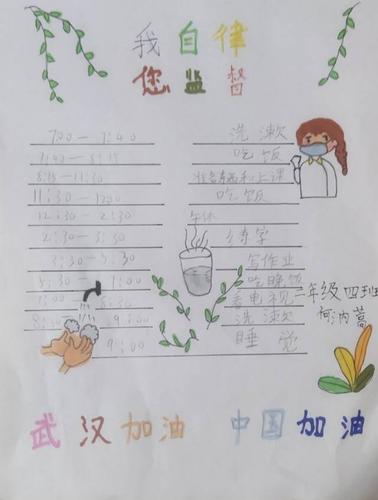 我自律
您监督
7:00—7:40 洗漱
7:40—8:15 吃饭
8:15—11:30 准备和上课
11:30—12:00 吃饭
12:30—2:30 午休
2:30—3:30 练字
3:30—5:30 写作业
5:30— :00 吃晚饭
:00—8:30 看电视
8:30—9:00 洗漱
9:00 睡觉
二年级四班
何沩蔓
武汉加油 中国加油